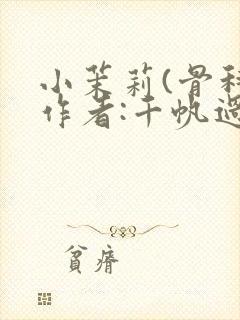 小茉莉(骨科
作者:千帆過
貧瘠